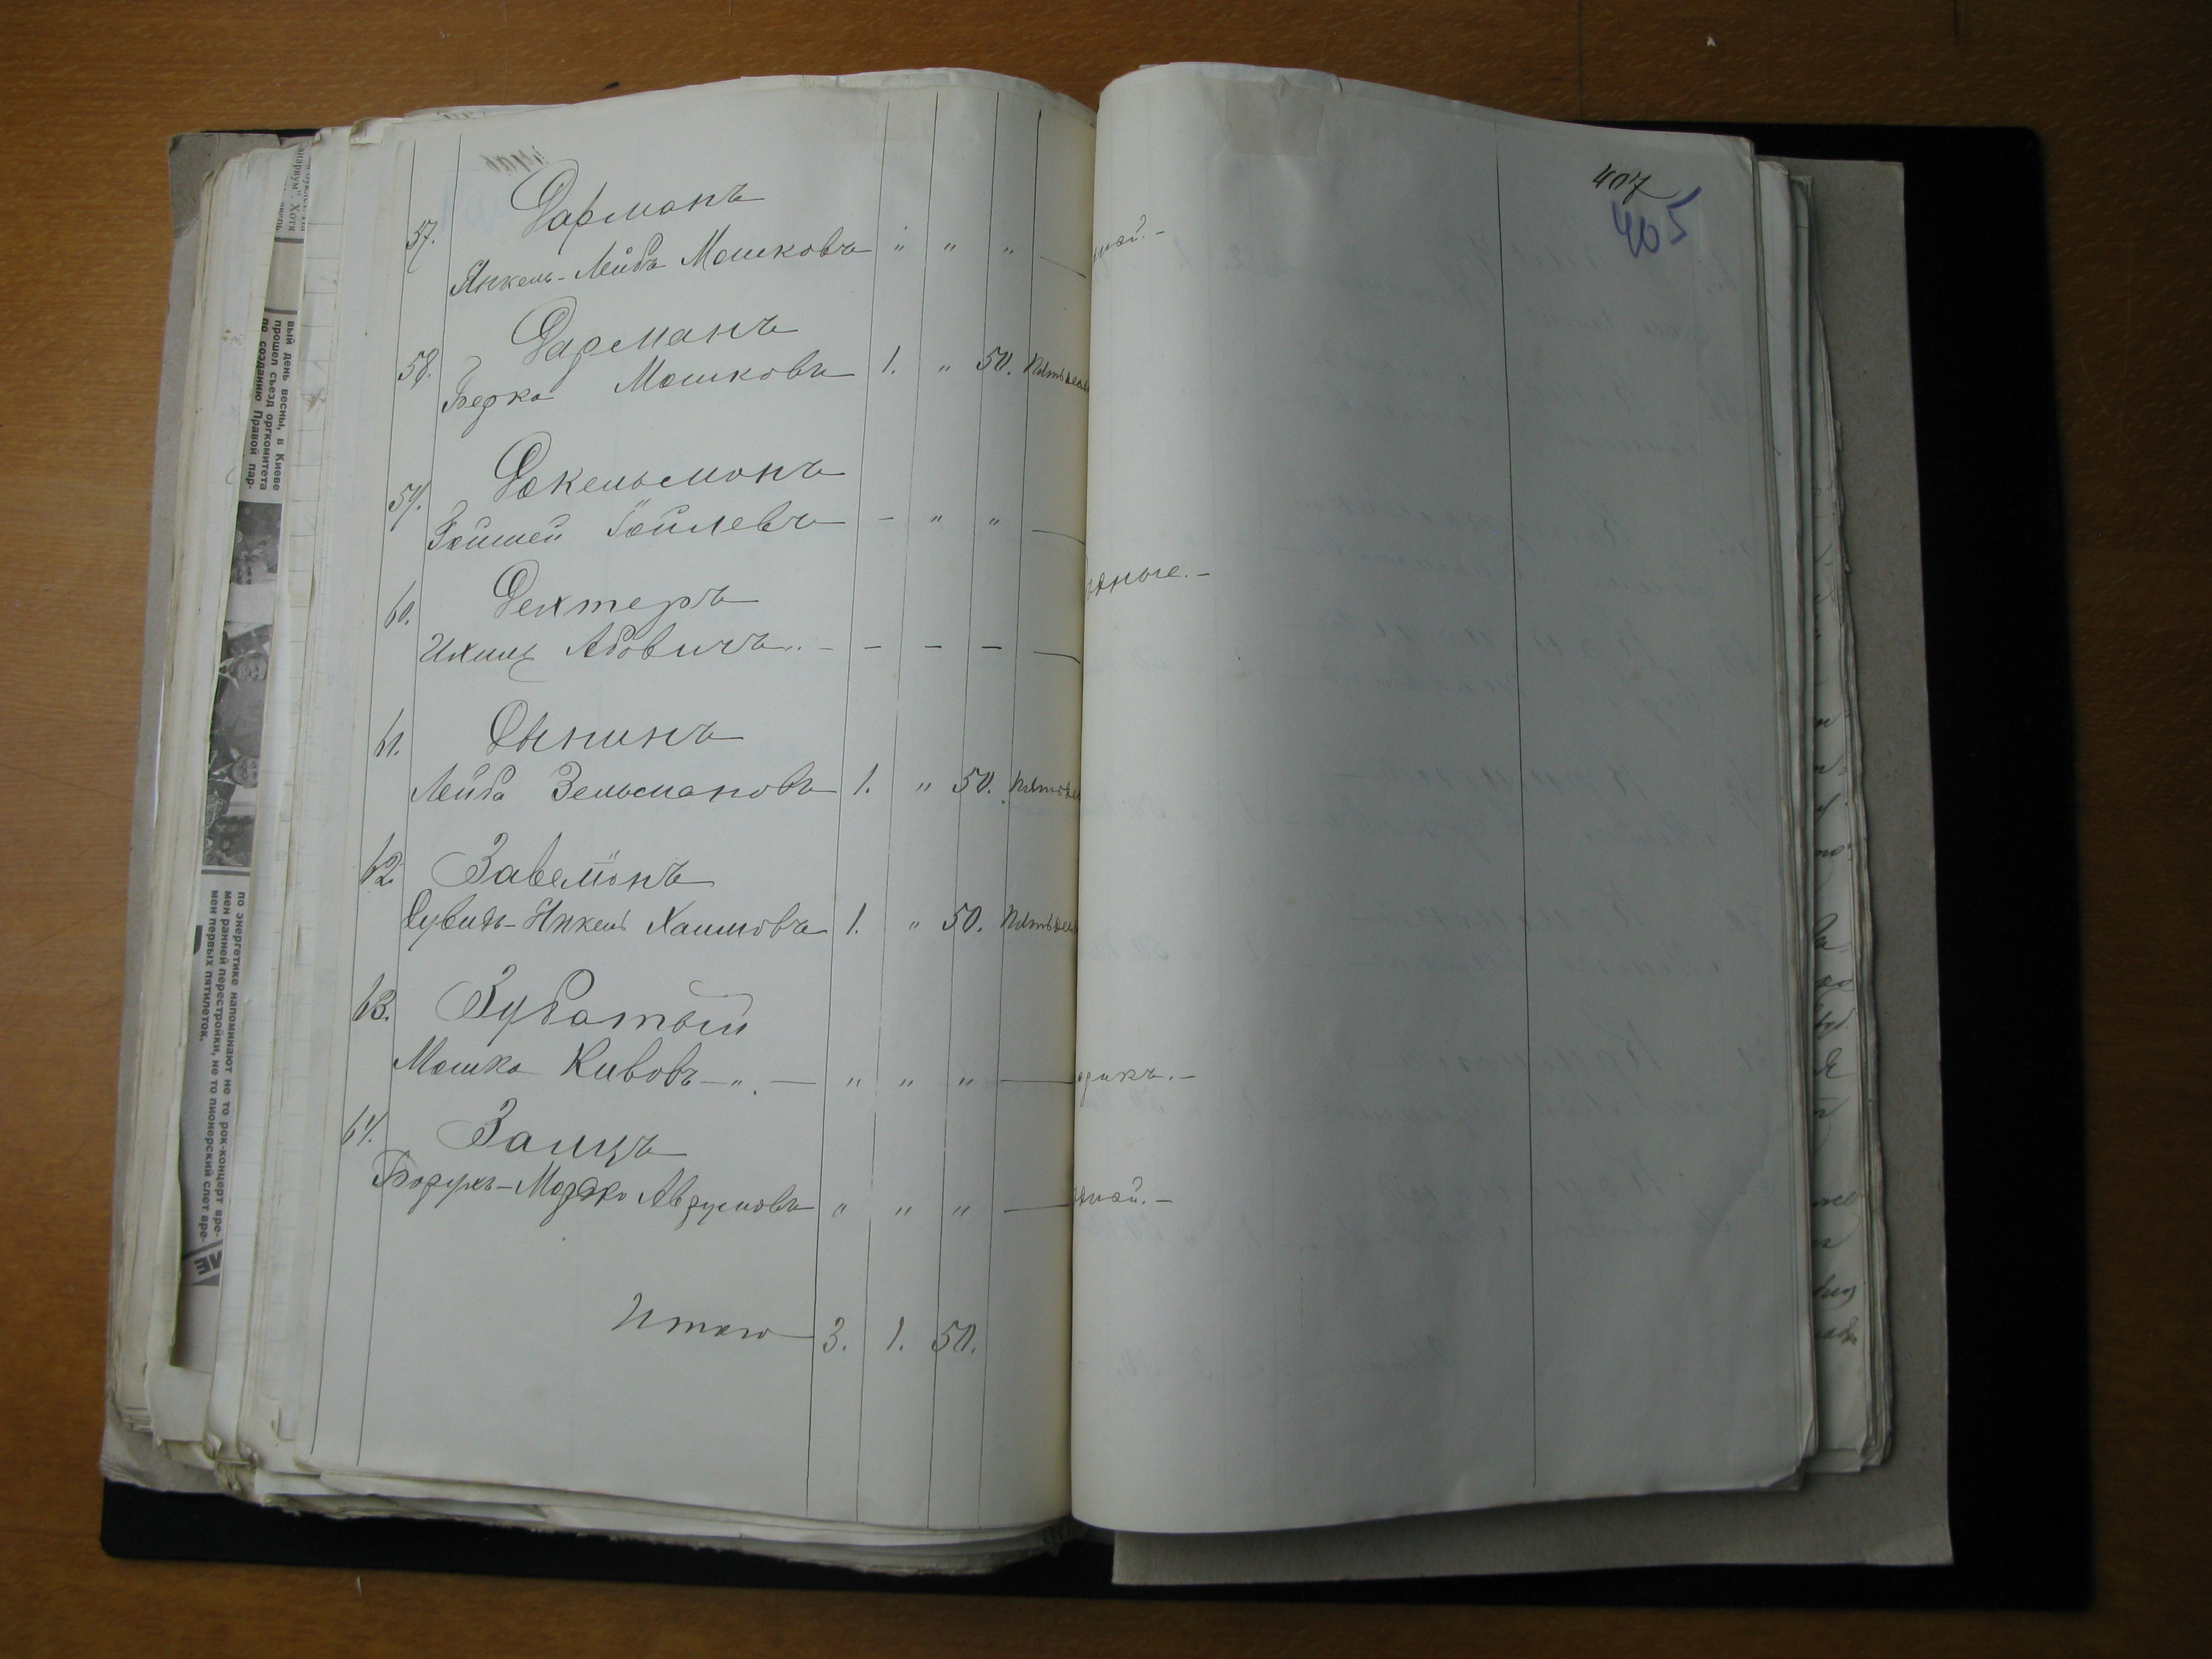 57. Дарманъ
Янкель-Лейба Мошковъ " " "
58. Дарманъ
Берко Мошковъ 1. " 50.
59. Докельманъ
" "
60. Дехтеръ
Абовичъ
61. Дынинъ
Лейба Зельмановъ 1. " 50.
62.
Дувидъ-Янкель Хаимовъ 1. " 50.
63. Зубатый
Мошко Кивовъ " " "
64. Заицъ
Борухъ-Мордко Аврумовъ " " "
Итого 3. 1. 50.
407
405
вый день весны, в Киеве
прошел съезд оргкомитета
по созданию Правой пар-
по энергетике напоминают не то рок-концерт вре-
мен ранней перестройки, не то пионерский слет вре-
мен первых пятилеток.